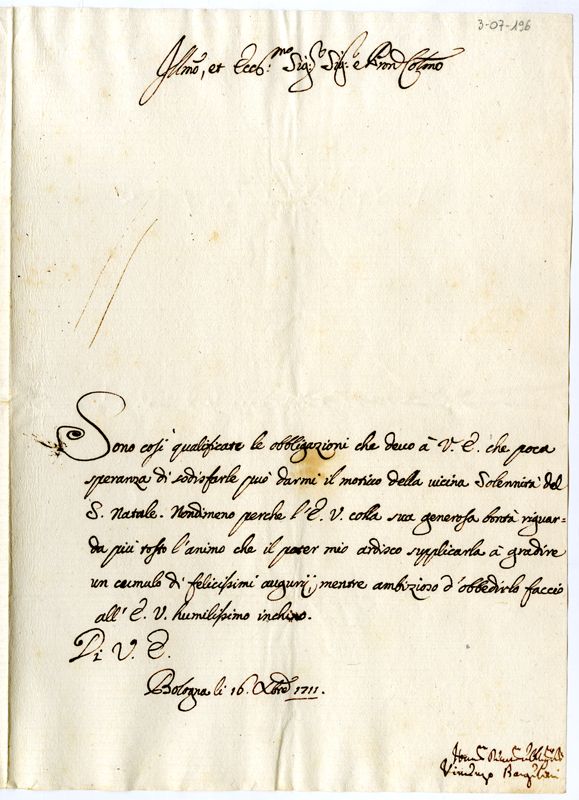 3-07-196
Illmo, et Ecc:mo Sig:r Sig:r e Pron Colmo
Sono così qualificate le obbligazioni che devo à V. E. che poca
speranza di sodisfarle può darmi il motivo della vicina Solennità del
S. Natale. Nondimeno perche l'E. V. colla sua generosa bontà riguar=
da più tosto l'animo che il poter mio ardisco supplicarla à gradire
un cumulo di felicissimi augurj, mentre ambizioso d'obbedirlo faccio
all' E. V. humilissimo inchino.
Di V. E.
Bologna li 16. Xbre 1711.
Vincenzo Bargellini